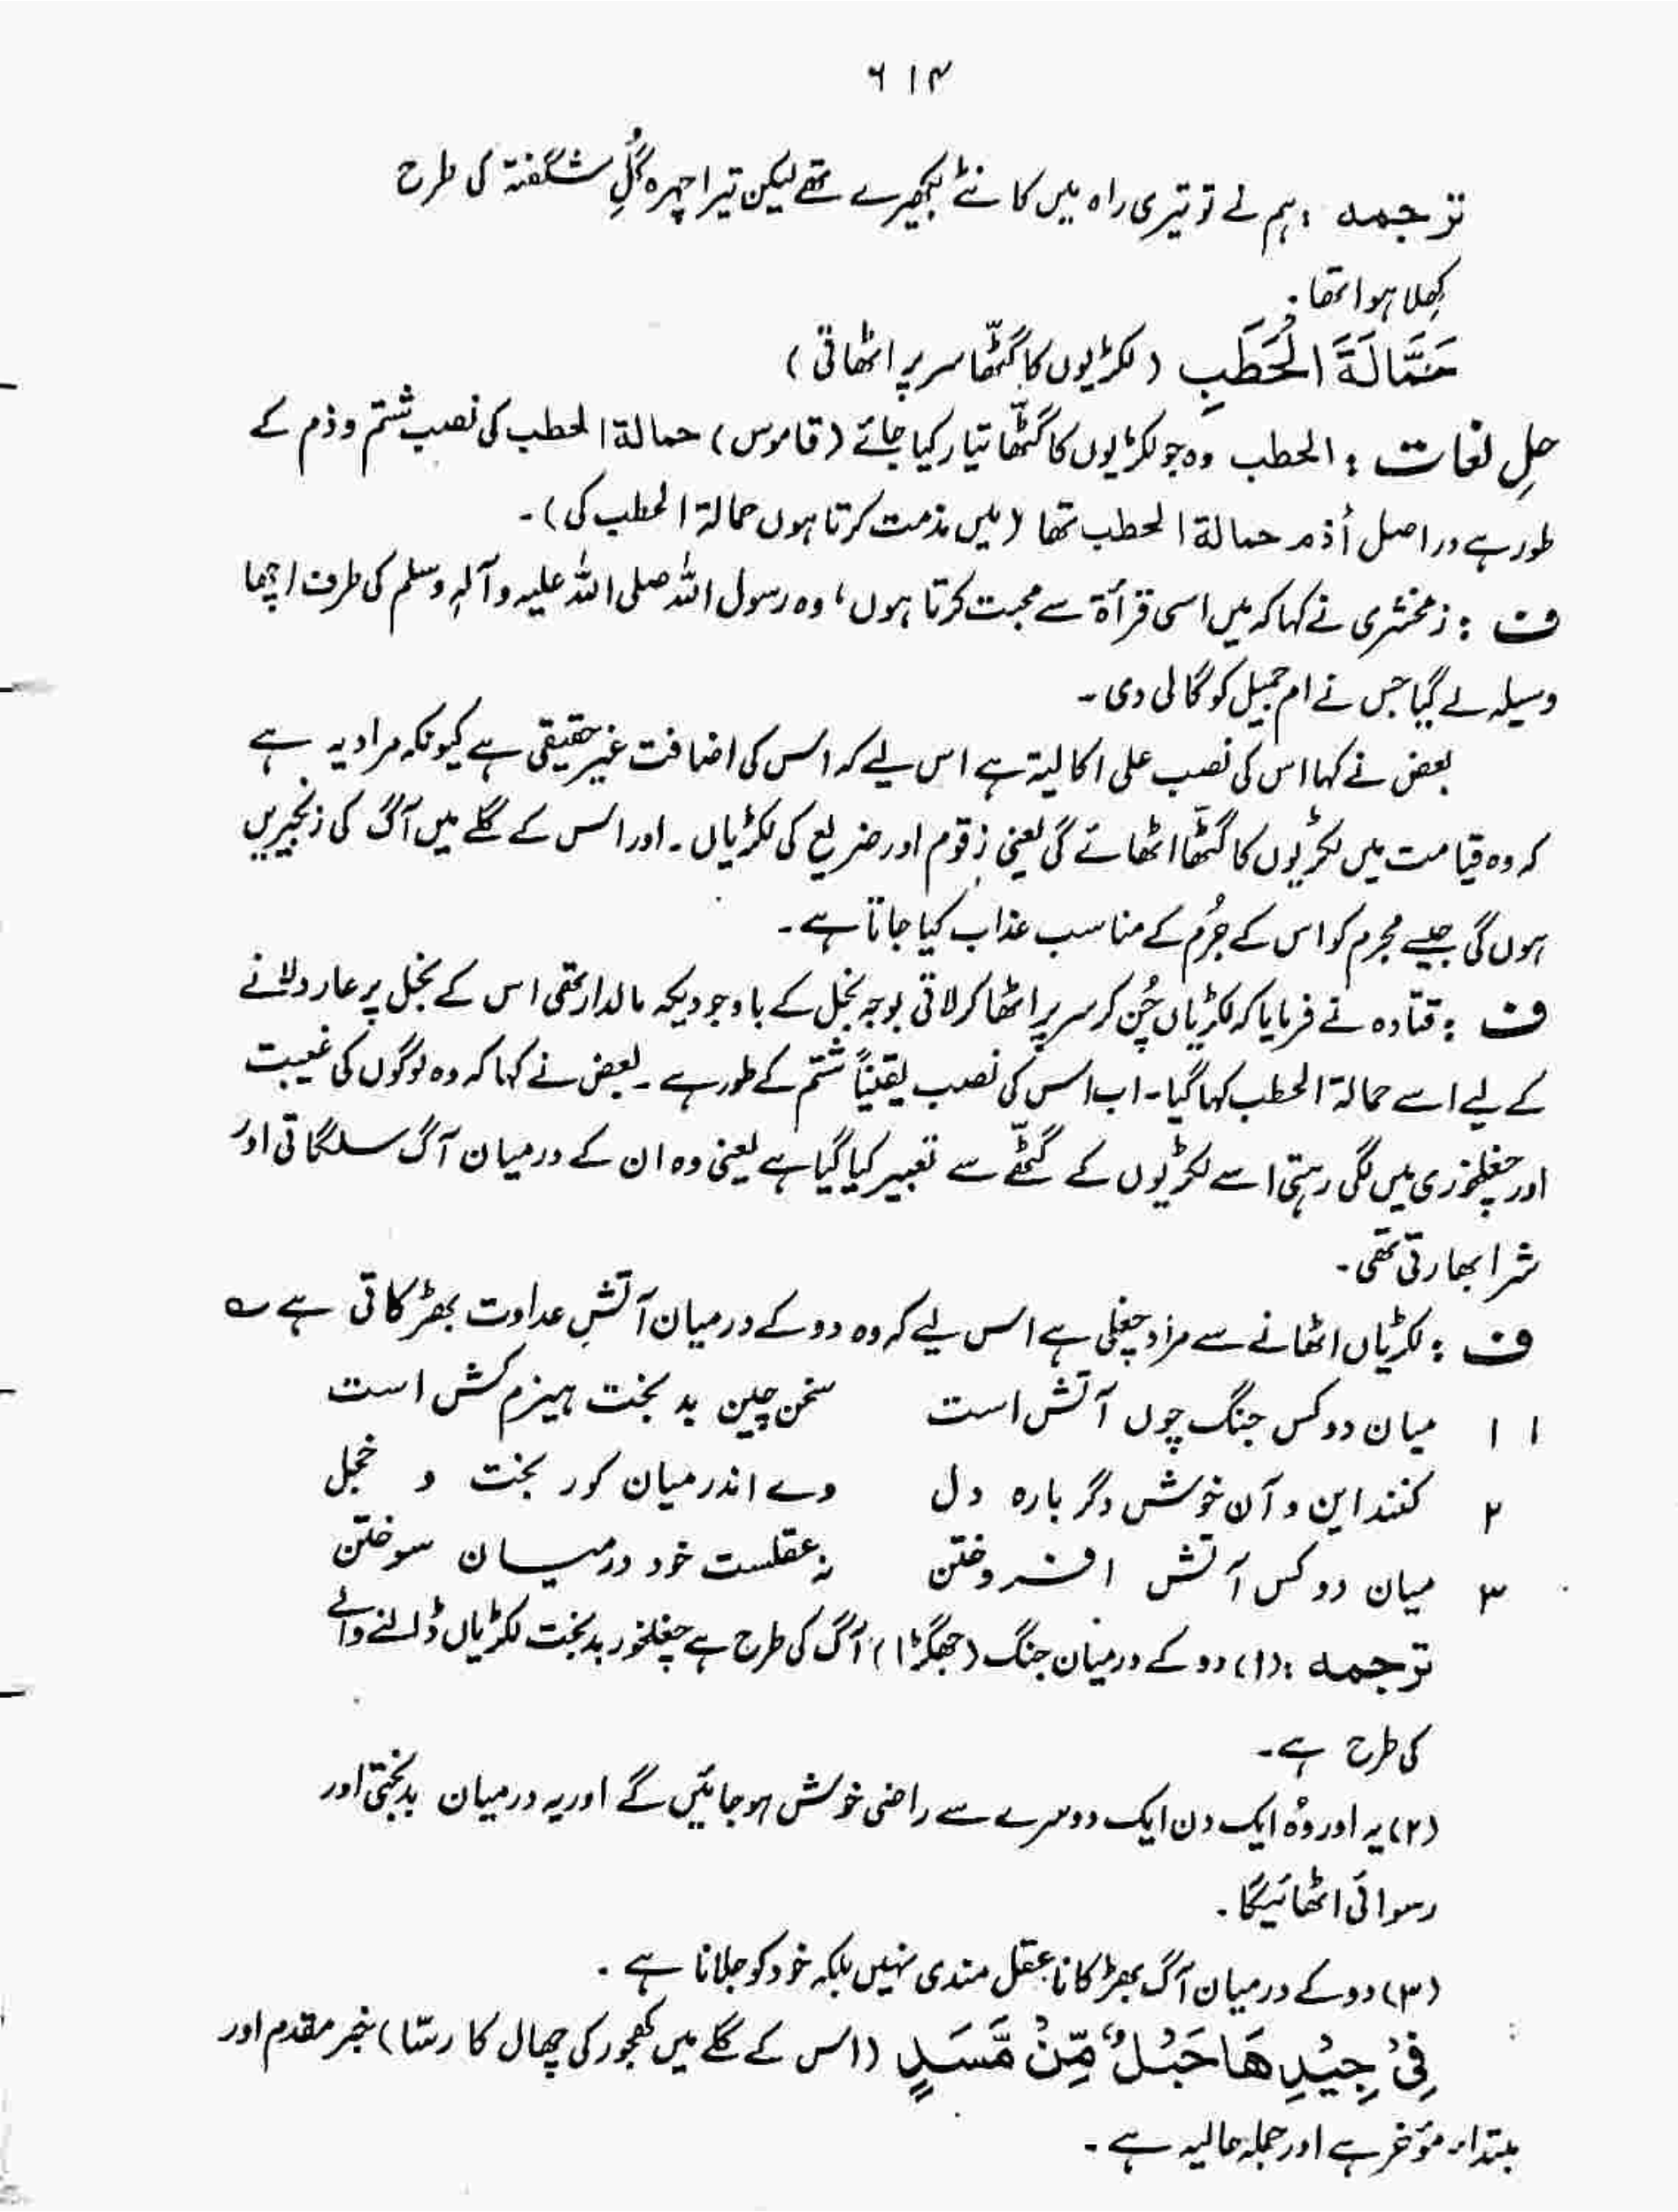 ۶۱۴
ترجمہ: ہم نے تو تیری راہ میں کانٹے بکھیرے تھے لیکن تیرا چہرہ گُلِ شگفتہ کی طرح
کِھلا ہوا تھا.
حَمَّالَةَ الْحَطَبِ (لکڑیوں کا گٹھّا سر پر اٹھاتی)
حلِ لغات: الحطب وہ جو لکڑیوں کا گٹھّا تیار کیا جائے (قاموس) حمالة الحطب کی نصب شتم و ذم کے
طور ہے دراصل أذم حمالة الحطب تھا (میں مذمت کرتا ہوں حمالۃ الحطب کی)۔
ف: زمخشری نے کہا کہ میں اسی قرأۃ سے محبت کرتا ہوں، وہ رسول اللہ صلی اللہ علیہ وآلہٖ وسلم کی طرف اچھا
وسیلہ لے گیا جس نے ام جمیل کو گالی دی۔
بعض نے کہا اس کی نصب علی الحالیۃ ہے اس لیے کہ اس کی اضافت غیر حقیقی ہے کیونکہ مراد یہ ہے
کہ وہ قیامت میں لکڑیوں کا گٹھّا اٹھائے گی یعنی زقوم اور ضریع کی لکڑیاں۔ اور اس کے گلے میں آگ کی زنجیریں
ہوں گی جیسے مجرم کو اس کے جُرم کے مناسب عذاب کیا جاتا ہے۔
ف: قتادہ نے فرمایا کہ لکڑیاں چُن کر سر پر اٹھا کر لاتی بوجہ بخل کے باوجودیکہ مالدار تھی اس کے بخل پر عار دلانے
کے لیے اسے حمالۃ الحطب کہا گیا۔ اب اس کی نصب یقیناً شتم کے طور ہے۔ بعض نے کہا کہ وہ لوگوں کی غیبت
اور چغلخوری میں لگی رہتی اسے لکڑیوں کے گٹھّے سے تعبیر کیا گیا ہے یعنی وہ ان کے درمیان آگ سلگاتی اور
شر ابھارتی تھی۔
ف: لکڑیاں اٹھانے سے مراد چغلی ہے اس لیے کہ وہ دو کے درمیان آتشِ عداوت بھڑکاتی ہے ؎
۱ ۱ میان دو کس جنگ چوں آتش است سخن چین بد بخت ہیزم کش است
۲ کنند این و آن خوش دگر بارہ دل وے اندر میان کور بخت و خجل
۳ میان دو کس آتش افروختن نہ عقلست خود درمیان سوختن
ترجمہ: (۱) دو کے درمیان جنگ (جھگڑا) آگ کی طرح ہے چغلخور بدبخت لکڑیاں ڈالنے والے
کی طرح ہے۔
(۲) یہ اور وُہ ایک دن ایک دوسرے سے راضی خوش ہو جائیں گے اور یہ درمیان بدبختی اور
رسوائی اٹھائیگا.
(۳) دو کے درمیان آگ بھڑکانا عقل مندی نہیں بلکہ خود کو جلانا ہے.
فِیْ جِیْدِهَا حَبْلٌ مِّنْ مَّسَدٍ (اس کے گلے میں کھجور کی چھال کا رسّا) خبر مقدم اور
مبتداء مؤخر ہے اور جملہ حالیہ ہے۔